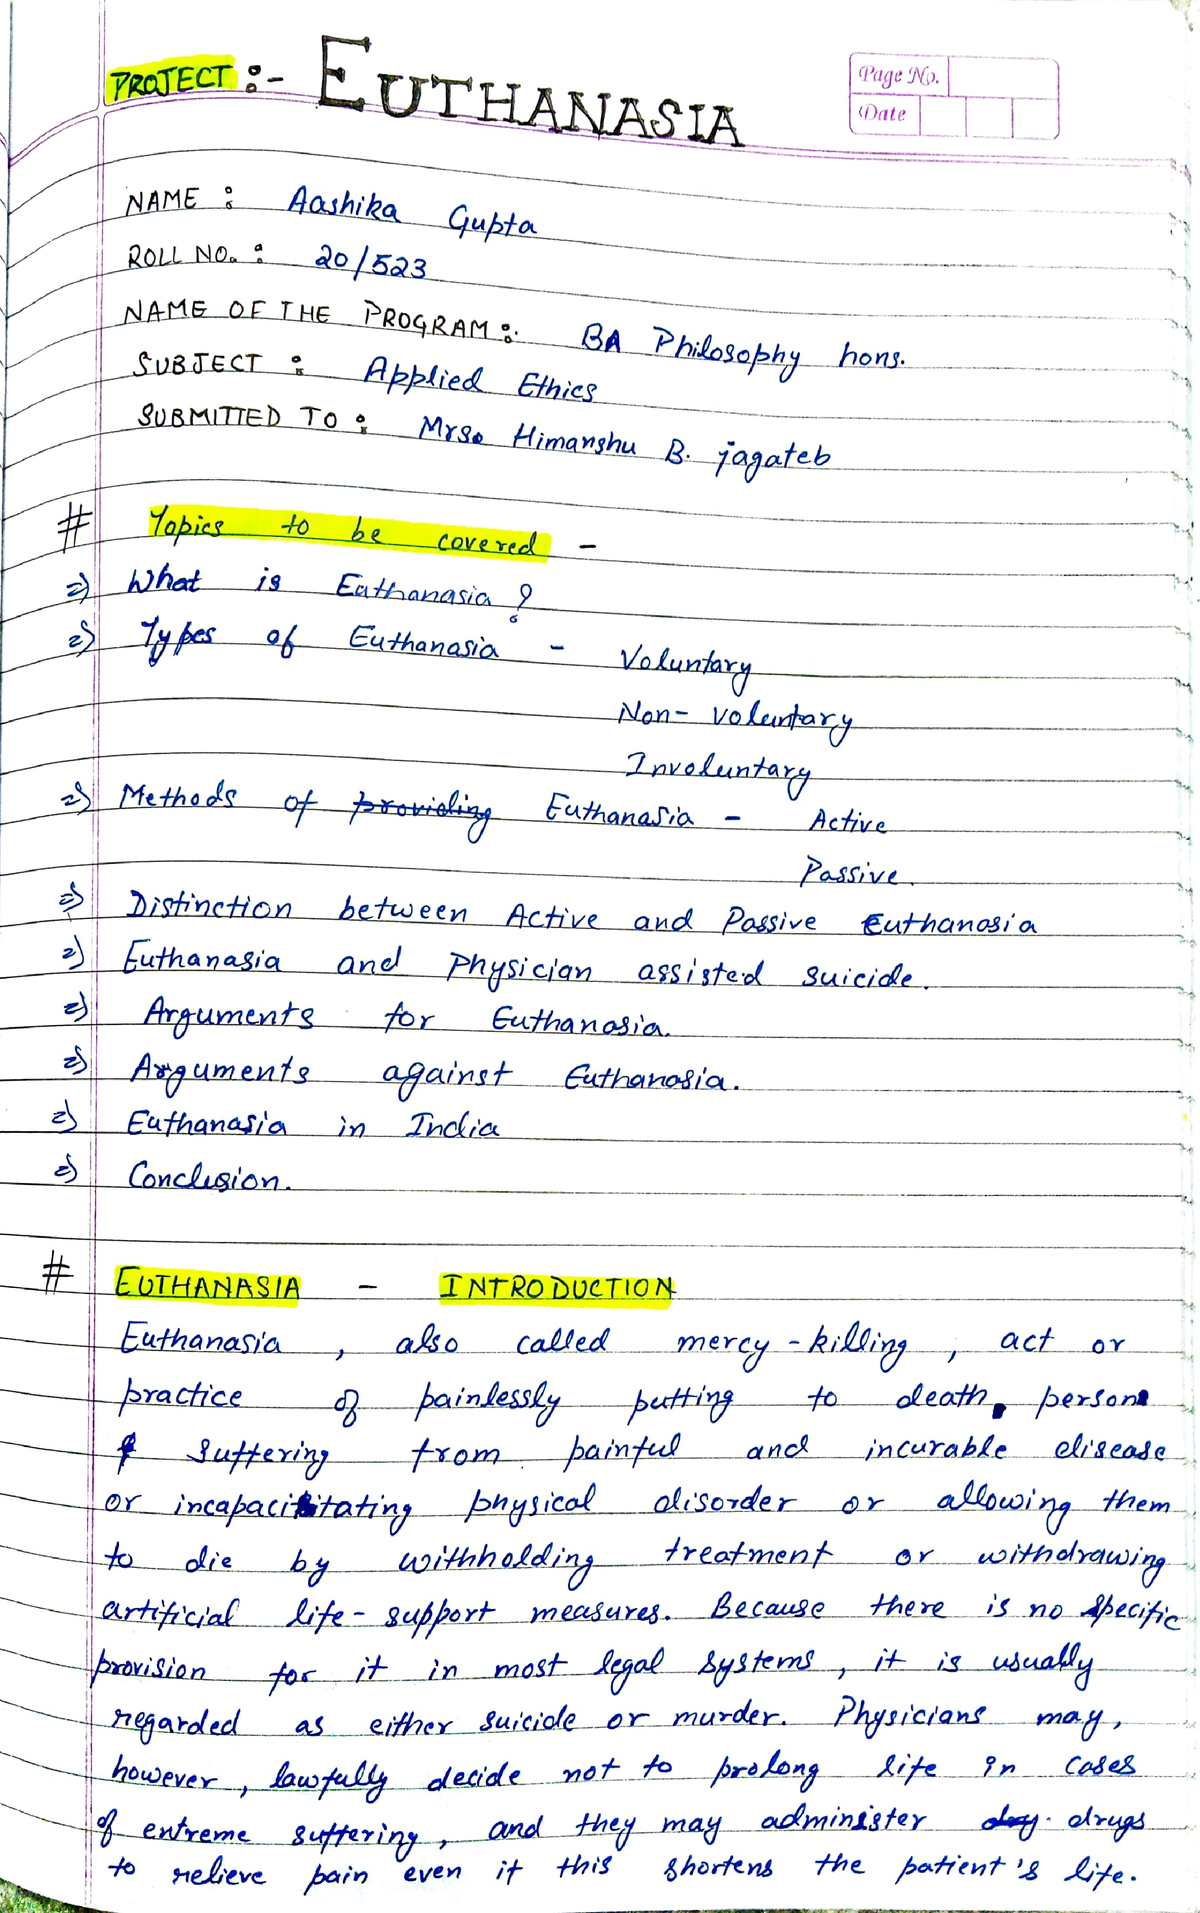 PROJECT :- EUTHANASIA
Page No.
Date
NAME : Aashika Gupta
ROLL NO. : 20/523
NAME OF THE PROGRAM : BA Philosophy hons.
SUBJECT : Applied Ethics
SUBMITTED TO : Mrs. Himanshu B. jagateb
# Topics to be covered -
=) What is Euthanasia ?
=) Types of Euthanasia - Voluntary
Non- voluntary
Involuntary
=) Methods of providing Euthanasia - Active
Passive.
=) Distinction between Active and Passive Euthanasia
=) Euthanasia and Physician assisted suicide.
=) Arguments for Euthanasia.
=) Arguments against Euthanasia.
=) Euthanasia in India
=) Conclusion.
# EUTHANASIA - INTRODUCTION
Euthanasia , also called mercy-killing , act or
practice of painlessly putting to death persons
suffering from painful and incurable disease
or incapacitating physical disorder or allowing them
to die by withholding treatment or withdrawing
artificial life-support measures. Because there is no specific
provision for it in most legal systems , it is usually
regarded as either suicide or murder. Physicians may,
however , lawfully decide not to prolong life in cases
of extreme suffering , and they may administer drugs
to relieve pain even if this shortens the patient's life.